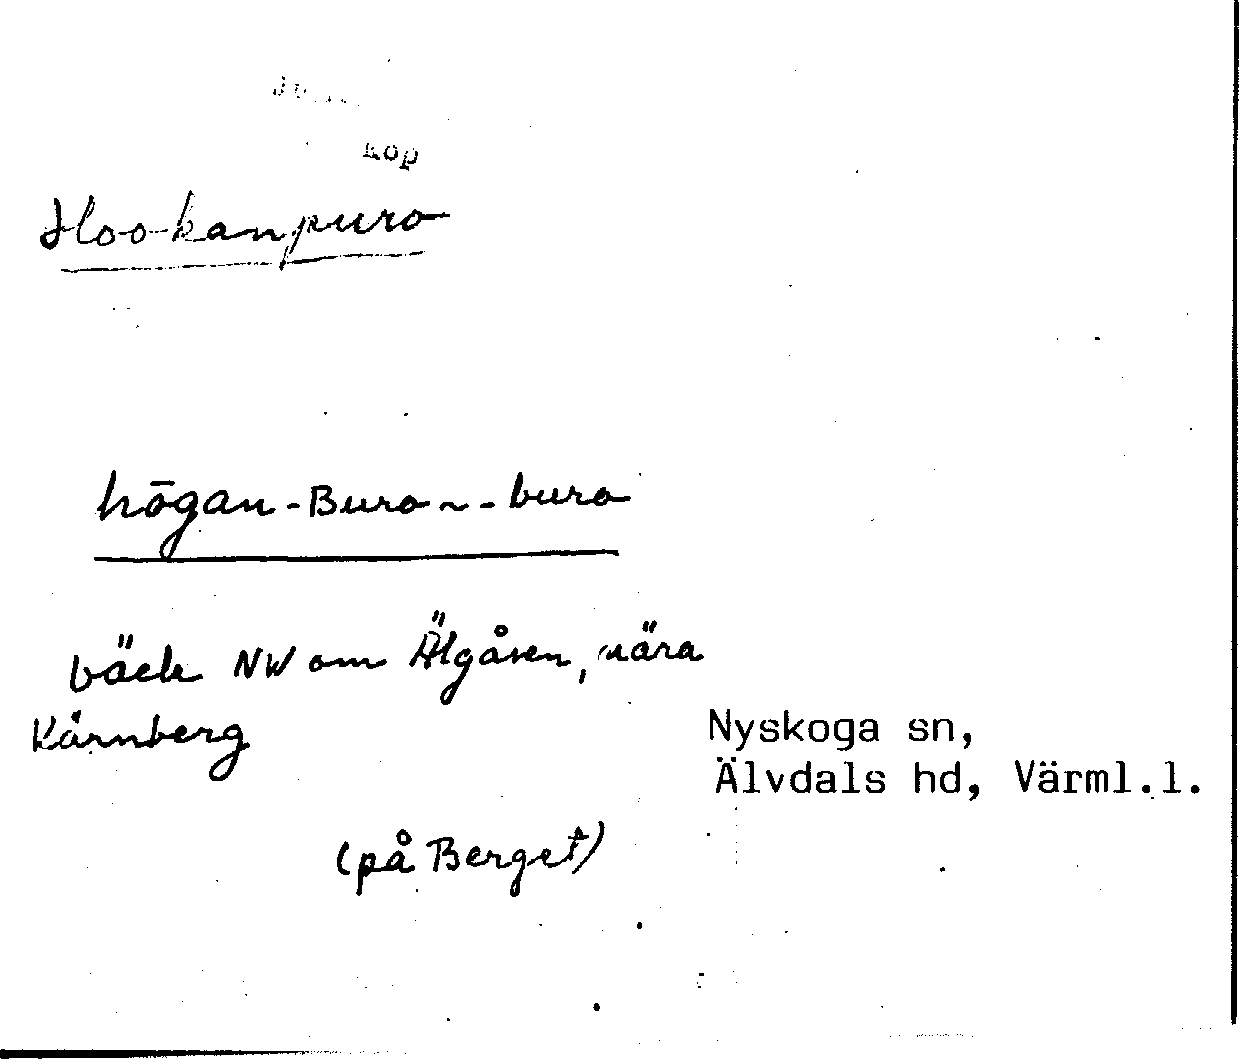 kop
Hookanpuro
hōgan-Buro ~ -buro
bäck NW om Älgåsen, nära
Kärnberg
Nyskoga sn,
Älvdals hd, Värml.l.
(på Berget)